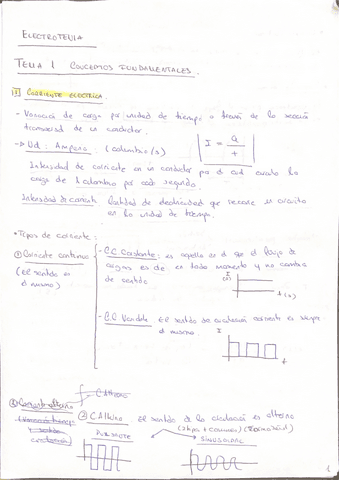 ELECTROTECNIA
TEMA 1 CONCEPTOS FUNDAMENTALES.
1) CORRIENTE ELÉCTRICA.
- Variación de carga por unidad de tiempo a través de la sección
transversal de un conductor.
I = Q / t
-> Ud: Amperio (culombio/s)
Intensidad de corriente en un conductor por el cual circula la
carga de 1 culombio por cada segundo.
Intensidad de corriente: Cantidad de electricidad que recorre un circuito
en la unidad de tiempo.
• Tipos de corriente:
① Corriente continua
(El sentido es
el mismo)
- C.C Constante: es aquella en el que el flujo de
cargas es de en todo momento y no cambia
de sentido
I
(A)
t (s)
- C.C Variable El sentido de circulación corriente es siempre
el mismo
I
t
C Alterna
② C Alterna El sentido de la circulación es alterno
(2 tipos + comunes)
SINUSOIDAL
1